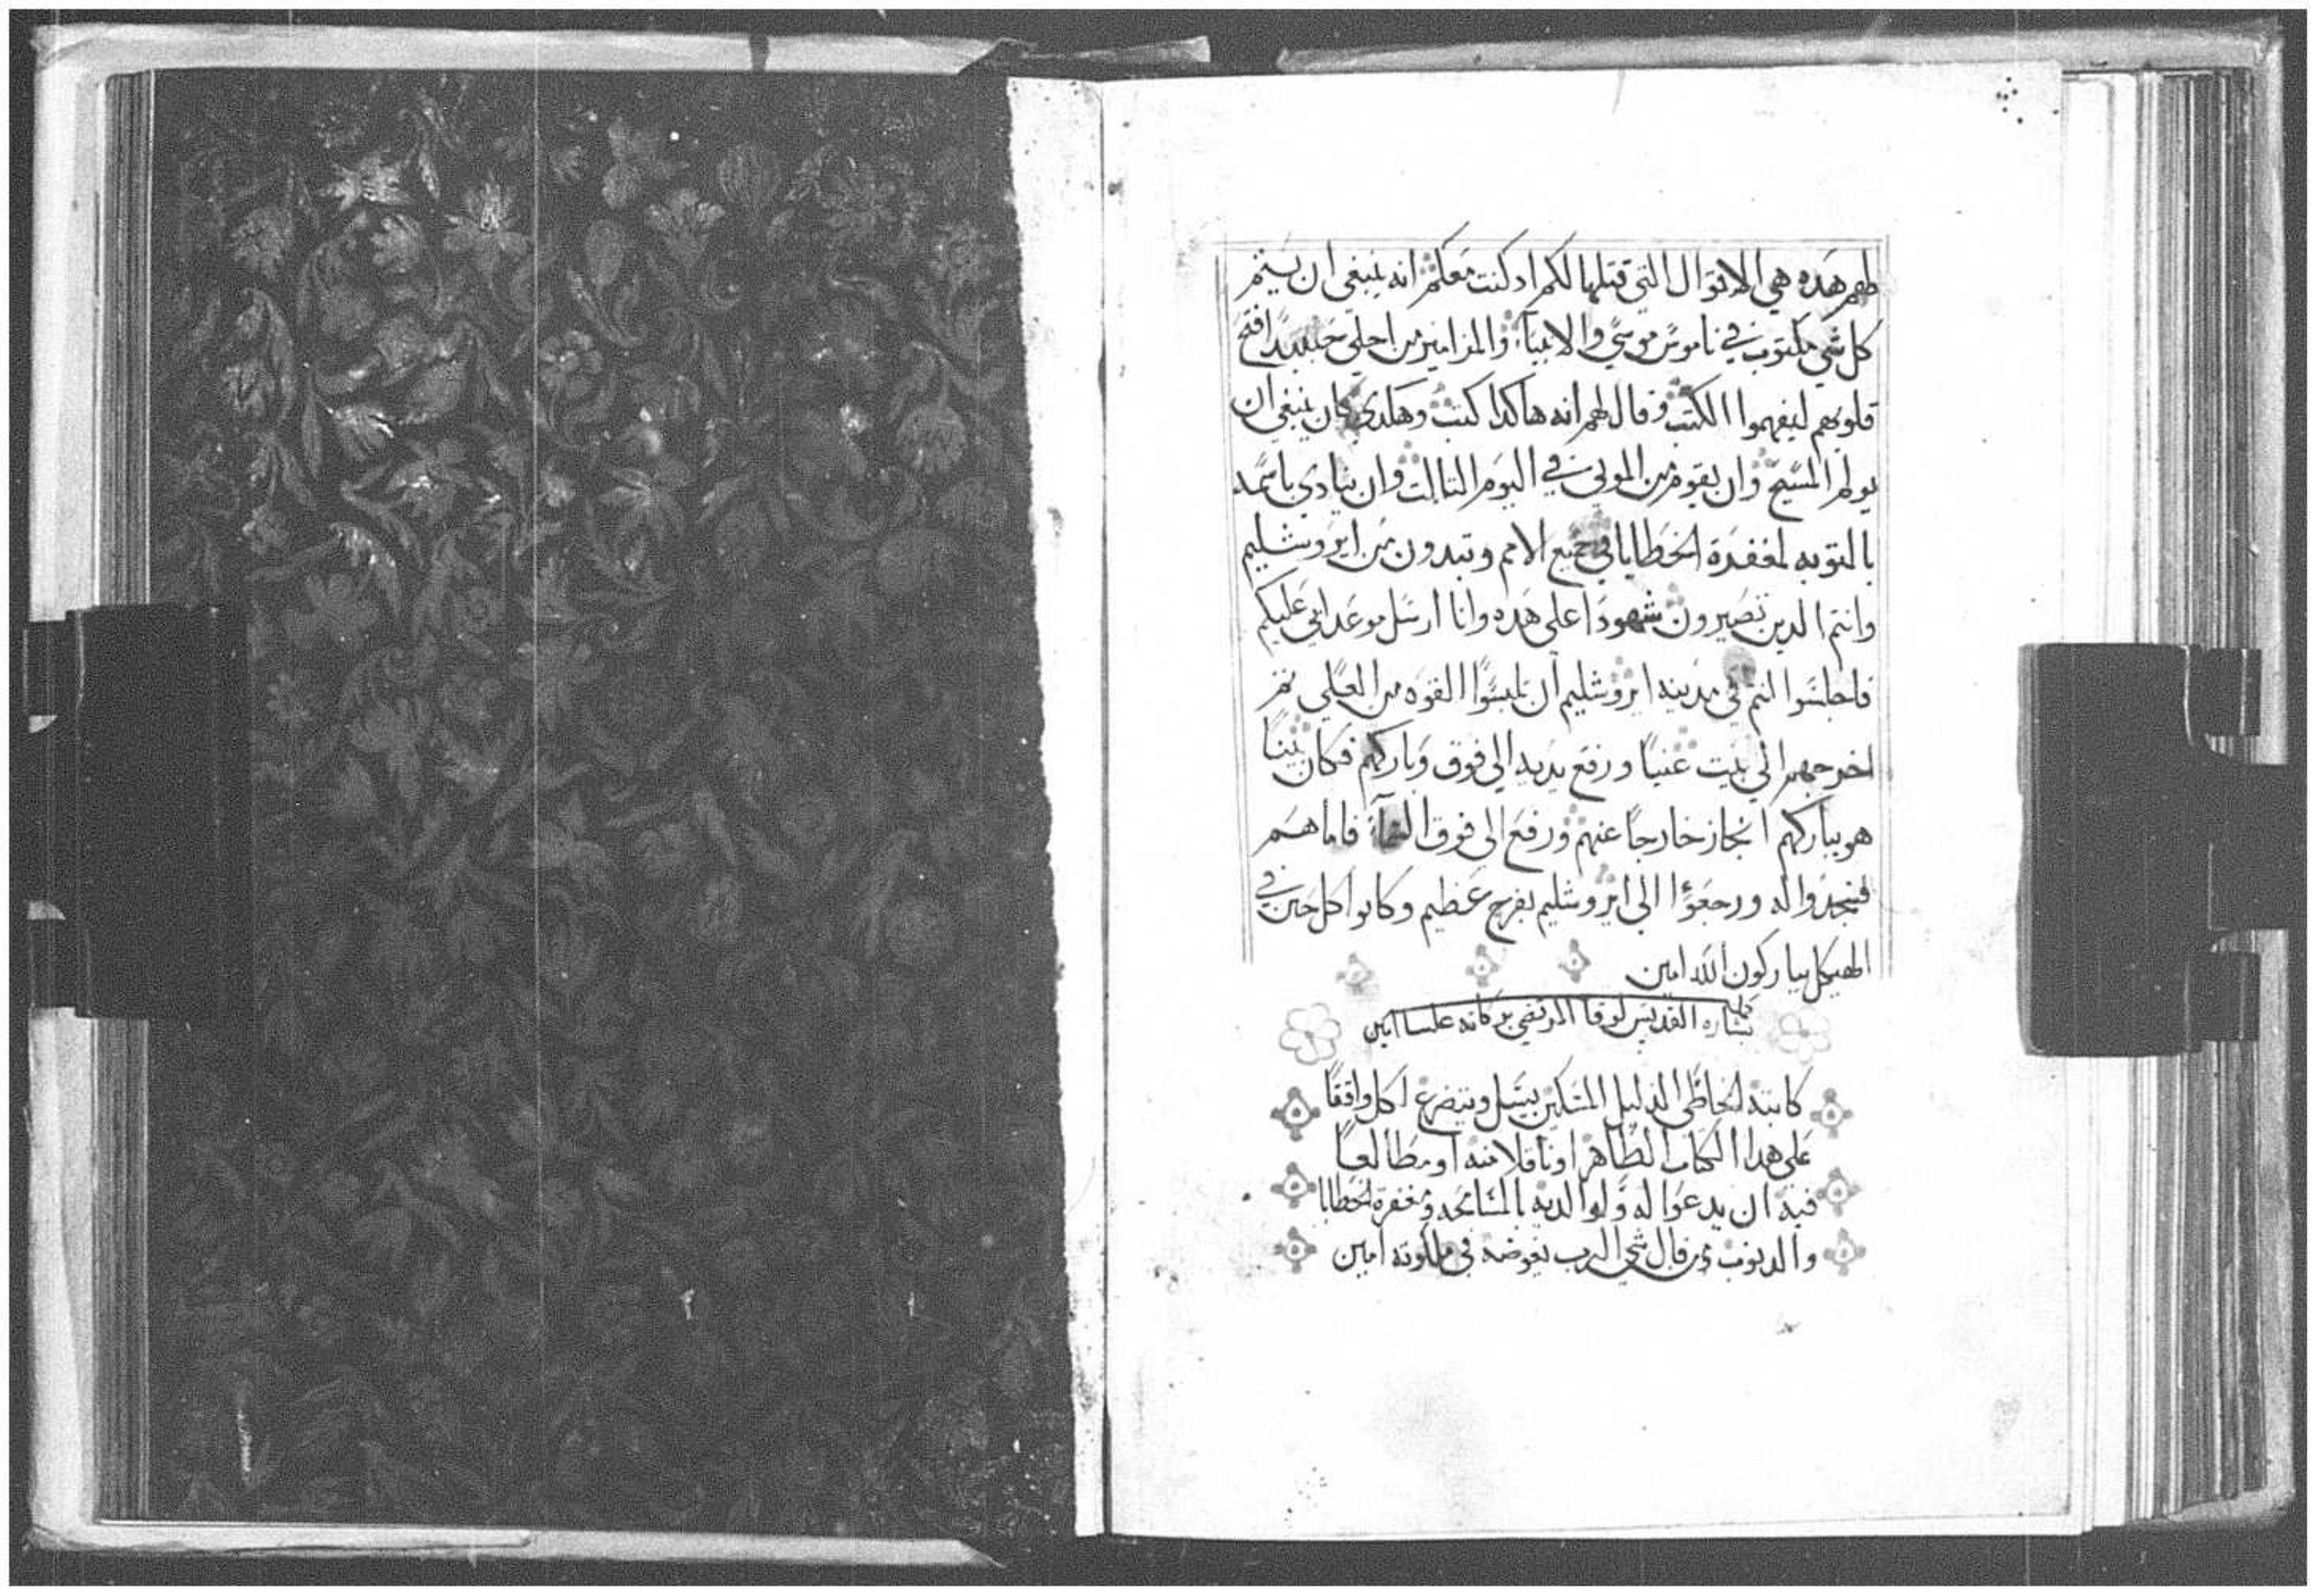 لهم هده هي الاقوال التي قتلها لكم اد كنت معكم انه ينبغي ان يتم
كل شي مكتوب في ناموس موسي والانبياء والمزامير من اجلي حينيدا فتح
قلوبهم ليفهموا الكتب وقال لهم انه هاكدا كتب وهكدي كان ينبغي ان
يولم المسيح وان يقوم من الموتي في اليوم التالت وان ينادي باسمه
بالتوبه لمغفرة الخطايا في جميع الامم وتبدون من ايروشليم
وانتم الدين تصيرون شهودا علي هده وانا ارسل موعد ابي عليكم
فاجلسوا انتم في مدينه ايروشليم ان تلبسوا القوه من العلي تم
اخرجهم الي بيت عنيا ورفع يديه الي فوق وباركهم فكان بينا
هو يباركهم انحاز خارجا عنهم ورفع الي فوق السماء فاما هم
فسجدوا له ورجعوا الي ايروشليم بفرح عظيم وكانوا كل حين في
الهيكل يباركون الله امين
بشاره القديس لوقا بركاته علينا امين
كاتبه الخاطي الدليل المسكين يسل ويتضرع لكل واقفا
علي هدا الكتاب الطاهر او ناقلا منه او مطالعا
فيه ان يدعوا له ولوالديه بالمسامحه ومغفرة الخطايا
والدنوب ومن قال شي الرب يعوضه في ملكوته امين